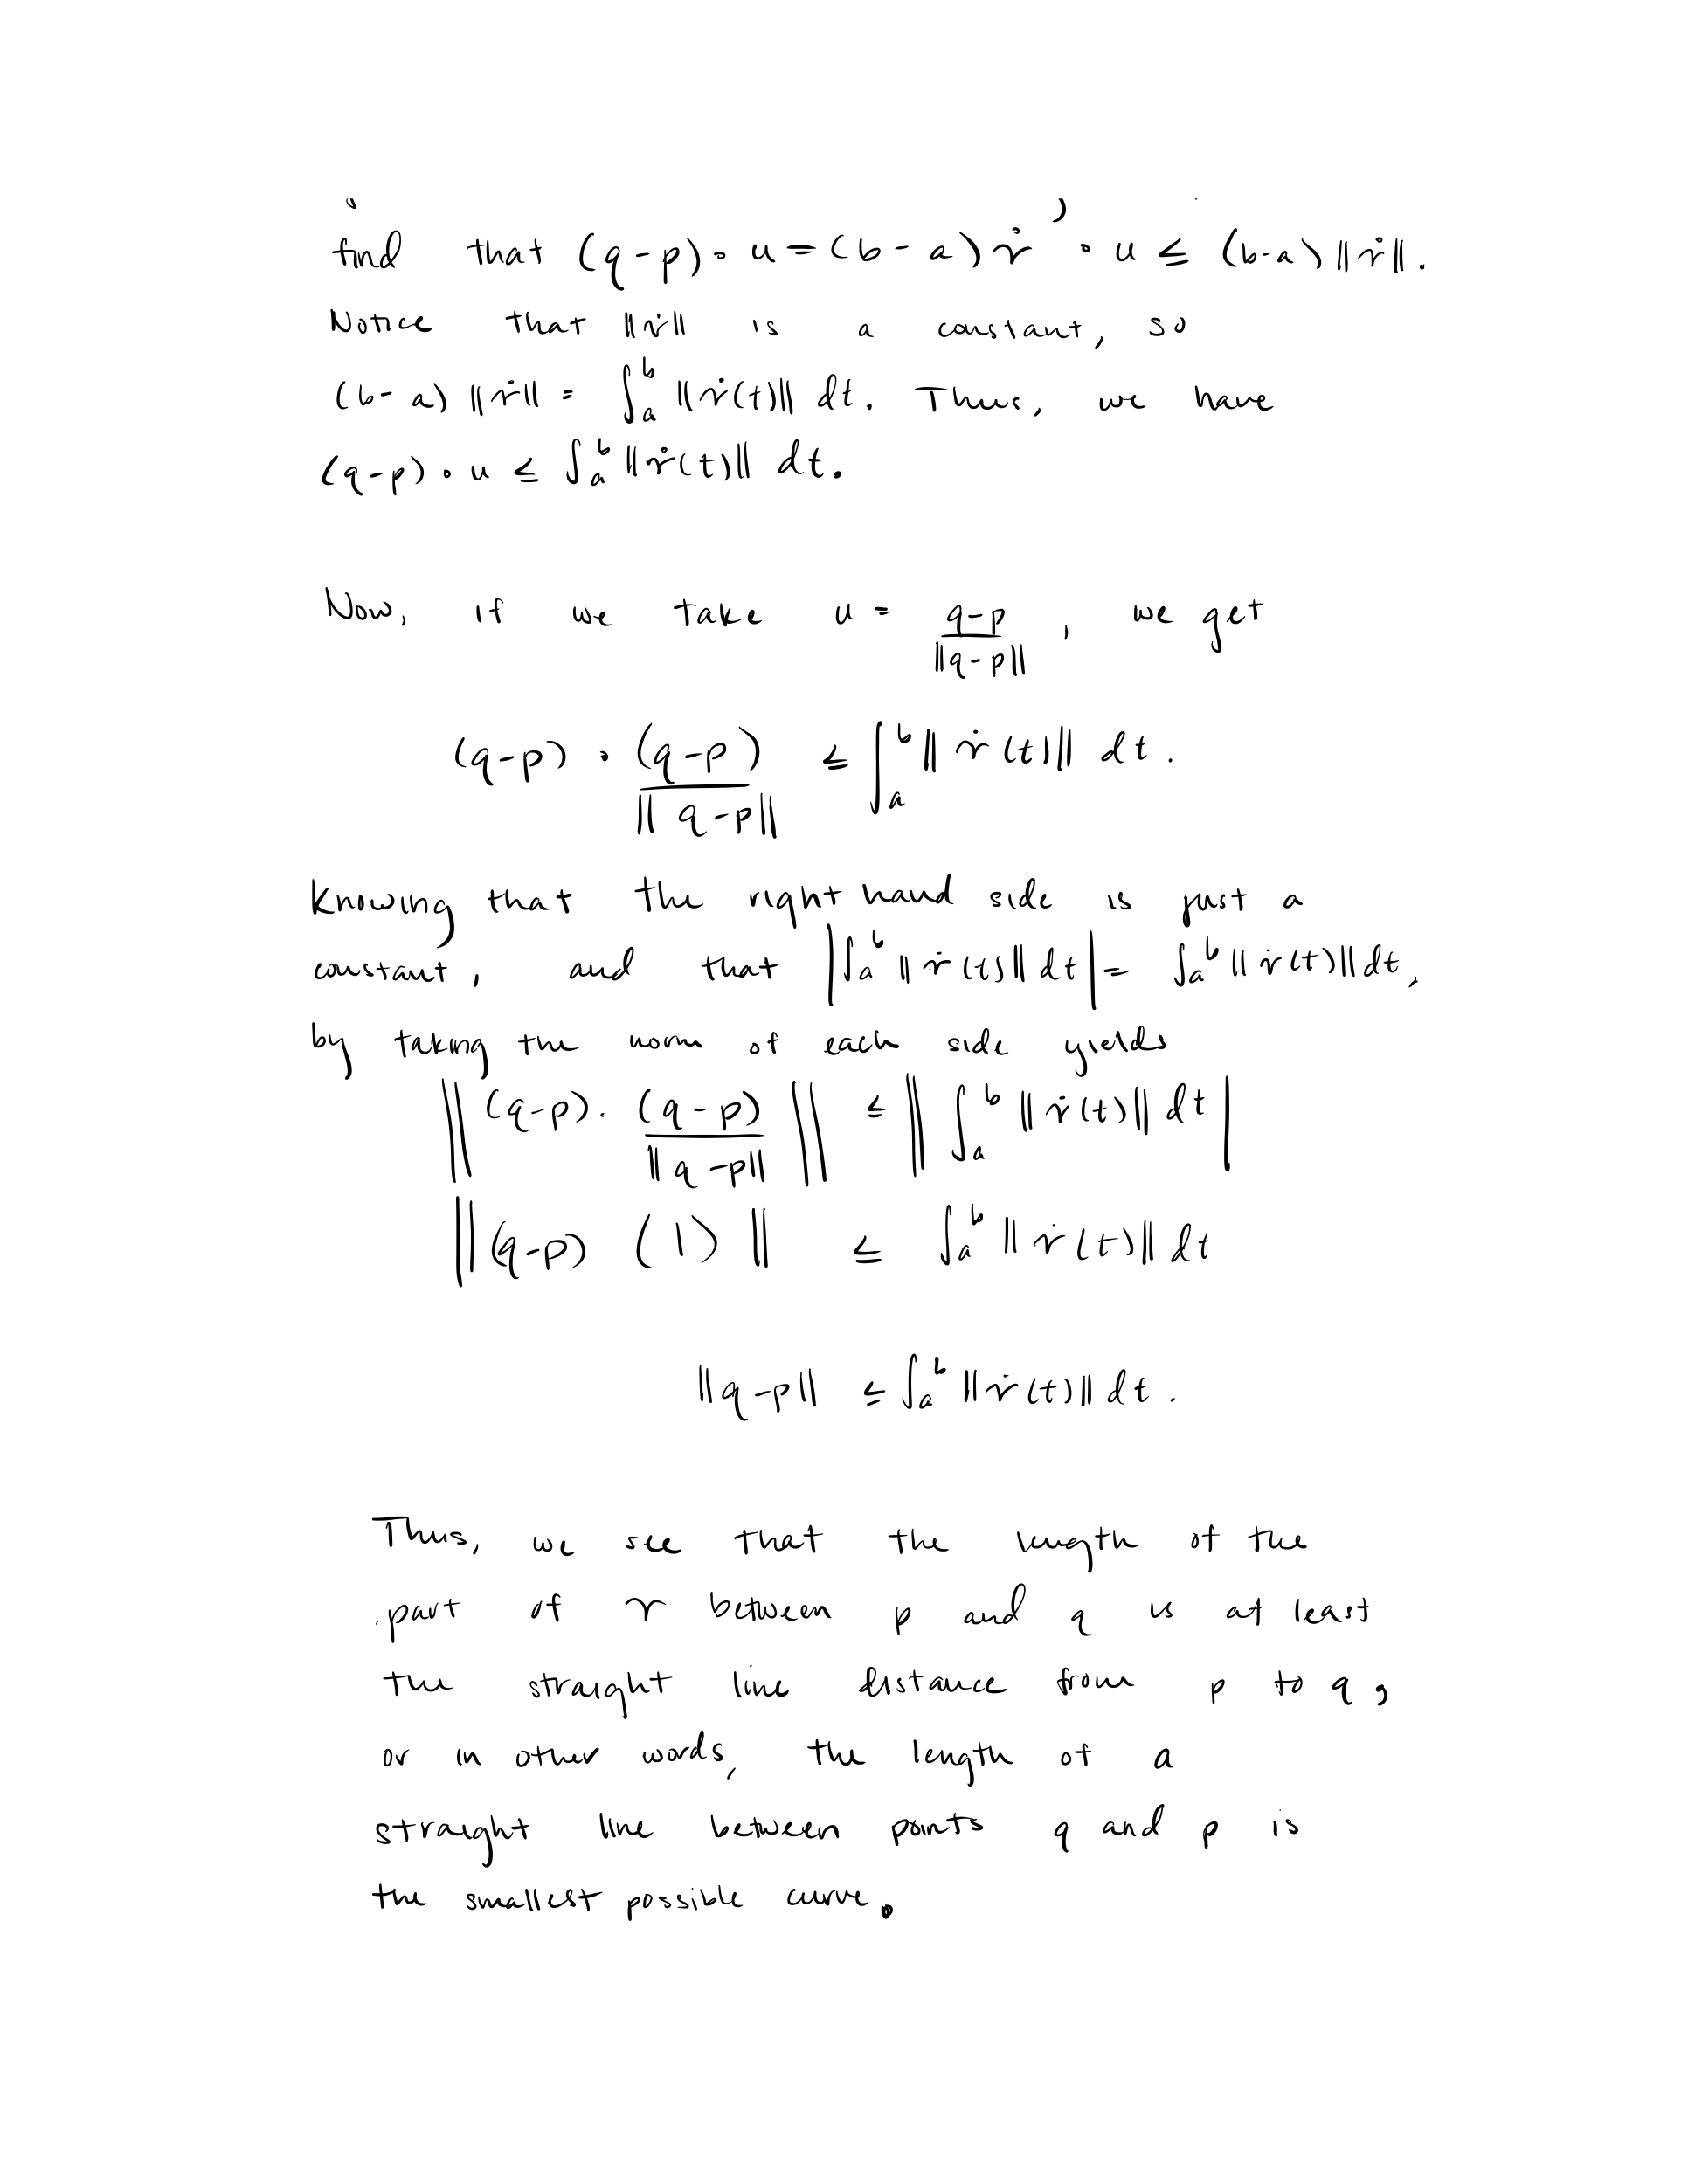 find that (q-p)∘u = (b-a) γ̇ ∘ u ≤ (b-a) ||γ̇||.
Notice that ||γ̇|| is a constant, so
(b-a) ||γ̇|| = ∫_a^b ||γ̇(t)|| dt. Thus, we have
(q-p)∘u ≤ ∫_a^b ||γ̇(t)|| dt.
Now, if we take u = (q-p)/||q-p||, we get
(q-p) ∘ (q-p)/||q-p|| ≤ ∫_a^b ||γ̇(t)|| dt.
Knowing that the right hand side is just a
constant, and that |∫_a^b ||γ̇(t)|| dt| = ∫_a^b ||γ̇(t)|| dt,
by taking the norm of each side yields
||(q-p)·(q-p)/||q-p|| || ≤ ||∫_a^b ||γ̇(t)|| dt|
||(q-p) (1)|| ≤ ∫_a^b ||γ̇(t)|| dt
||q-p|| ≤ ∫_a^b ||γ̇(t)|| dt.
Thus, we see that the length of the
part of γ between p and q is at least
the straight line distance from p to q,
or in other words, the length of a
straight line between points q and p is
the smallest possible curve.